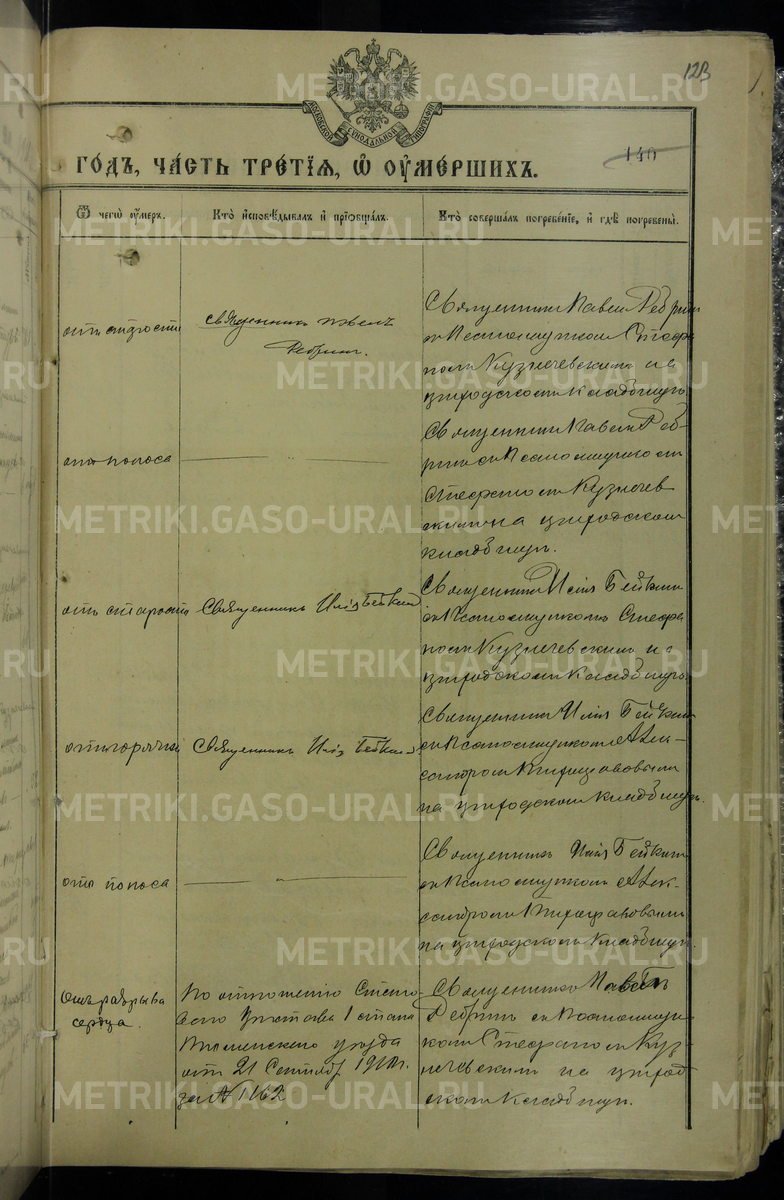 123
140
МОСКОВСКОЙ СѴНОДАЛЬНОЙ ТИПОГРАФІИ
ГОДЪ, ЧАСТЬ ТРЕТІЯ, Ѿ ОУМЕРШИХЪ.
Ѿ чегѡ оумеръ.
Кто исповѣдывалъ и пріобщалъ.
Кто совершалъ погребеніе, и гдѣ погребены.
отъ старости
Священникъ Павелъ
Ребринъ.
Священникъ Павелъ Ребринъ
съ Псаломщикомъ Стефа
номъ Кузнечевскимъ на
приходскомъ кладбищѣ
отъ поноса
Священникъ Павелъ Реб-
ринъ съ Псаломщикомъ
Стефаномъ Кузнечев
скимъ на приходскомъ
кладбищѣ.
отъ старости
Священникъ Илія Бейкинъ
Священникъ Илія Бейкинъ
съ Псаломщикомъ Стефа
номъ Кузнечевскимъ на
приходскомъ кладбищѣ
отъ горячки
Священникъ Илія Бейкинъ
Священникъ Илія Бейкинъ
съ Псаломщикомъ Алек-
сандромъ
на приходскомъ кладбищѣ.
отъ поноса
Священникъ Илія Бейкинъ
съ Псаломщикомъ Алек-
сандромъ
на приходскомъ кладбищѣ.
Отъ разрыва
сердца.
По отношенію Стано-
вого Пристава 1 стана
уѣзда
отъ 21 Сентябр 1910 г.
за № 1162
Священникъ Павелъ
Ребринъ съ Псаломщи-
комъ Стефаномъ Куз-
нечевскимъ на приход
скомъ кладбищѣ.
METRIKI.GASO-URAL.RU